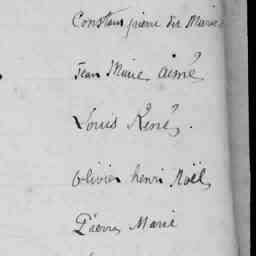 Constant pierre
Jean Marie aimé
Louis René.
Olivier henri Noël
Pierre Marie